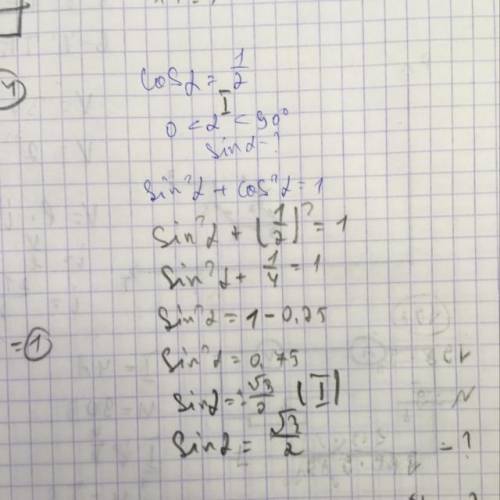 4
cos α = 1/2
I
0 < α < 90°
sin α - ?
sin² α + cos² α = 1
sin² α + (1/2)² = 1
sin² α + 1/4 = 1
sin² α = 1 - 0,25
= 1
sin² α = 0,75
sin α = ± √3/2 (I)
sin α = √3/2
- ?